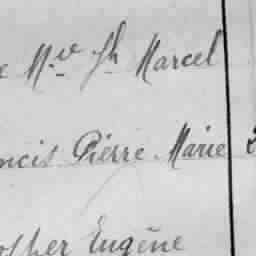 e M.ve Jh Marcel
ncis Pierre. Marie
opher Eugène